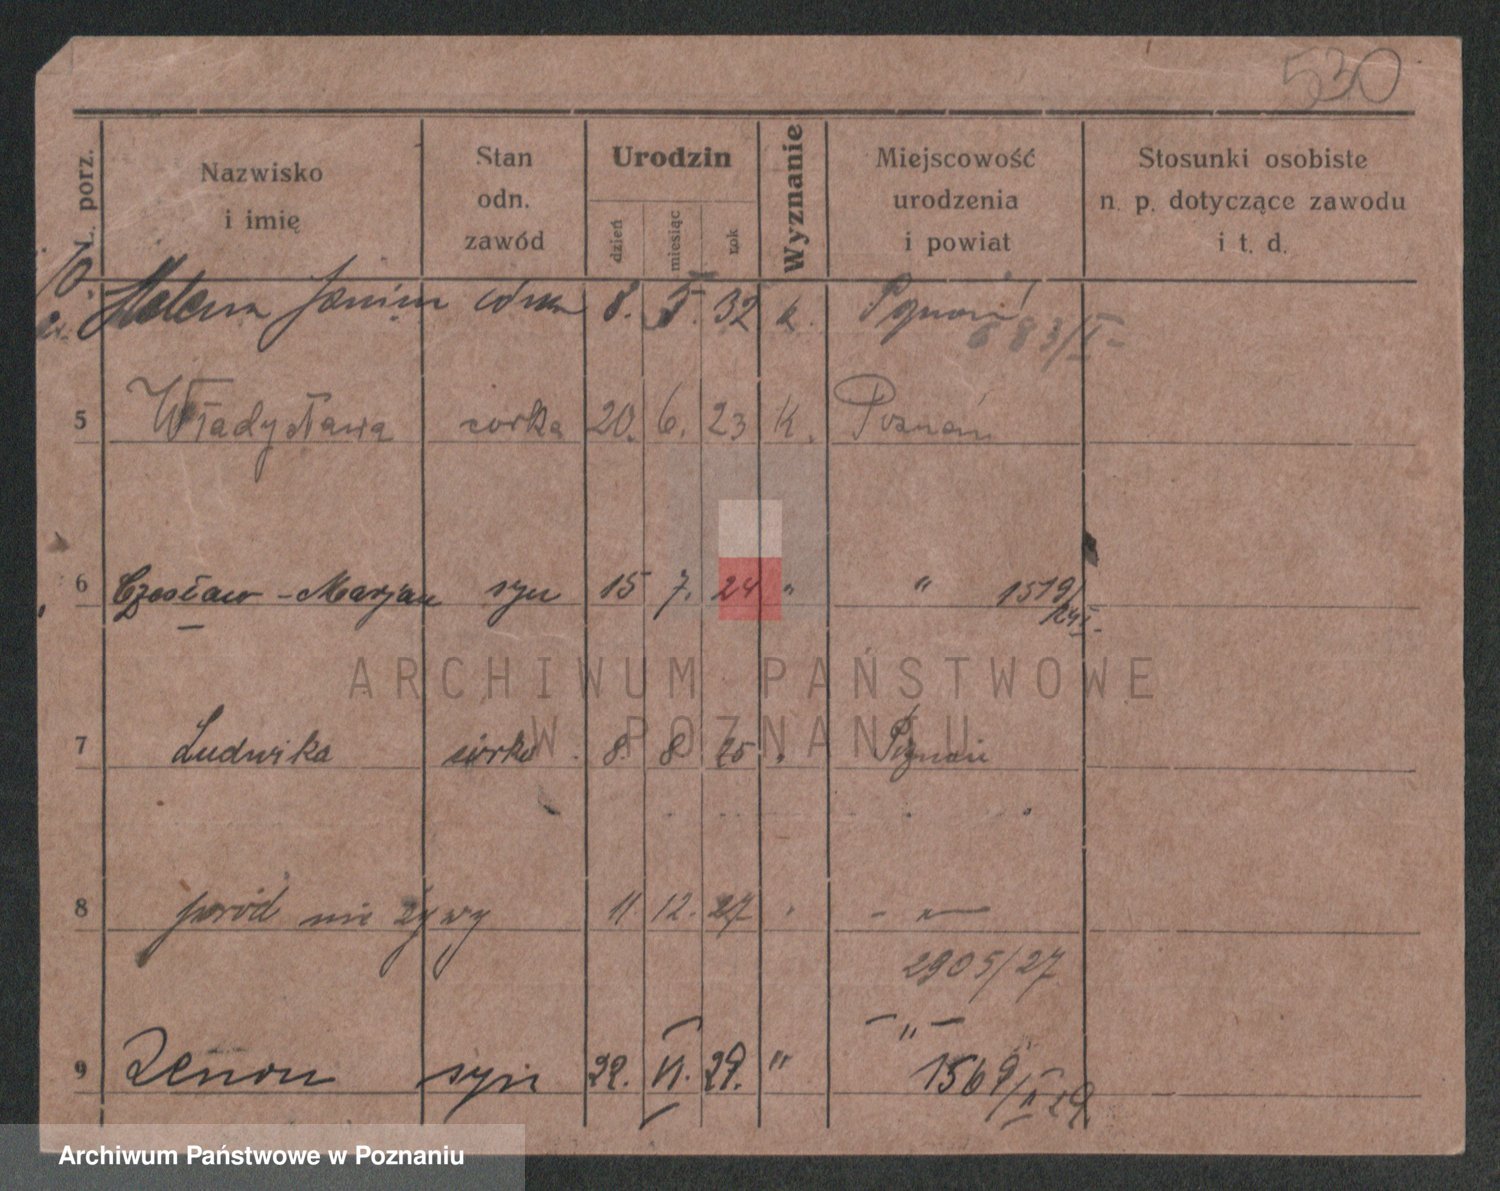 530
L. porz.
Nazwisko
i imię
Stan
odn.
zawód
Urodzin
dzień
miesiąc
rok
Wyznanie
Miejscowość
urodzenia
i powiat
Stosunki osobiste
n. p. dotyczące zawodu
i t. d.
10. Helena Janina córka 8. 5. 32 k. Poznań
883/I
5 Władysława corka 20. 6. 23 k. Poznań
6 Czesław-Marjan syn 15 7. 24 " " 1519/
24 I
7 Ludwika córka 8. 8 25 " Poznań
8 poród nie żywy 11. 12. 27 " - " -
2905/27
- " -
9 Zenon syn 22. VI. 29. " 1569/II 29
ARCHIWUM PAŃSTWOWE
W POZNANIU
Archiwum Państwowe w Poznaniu